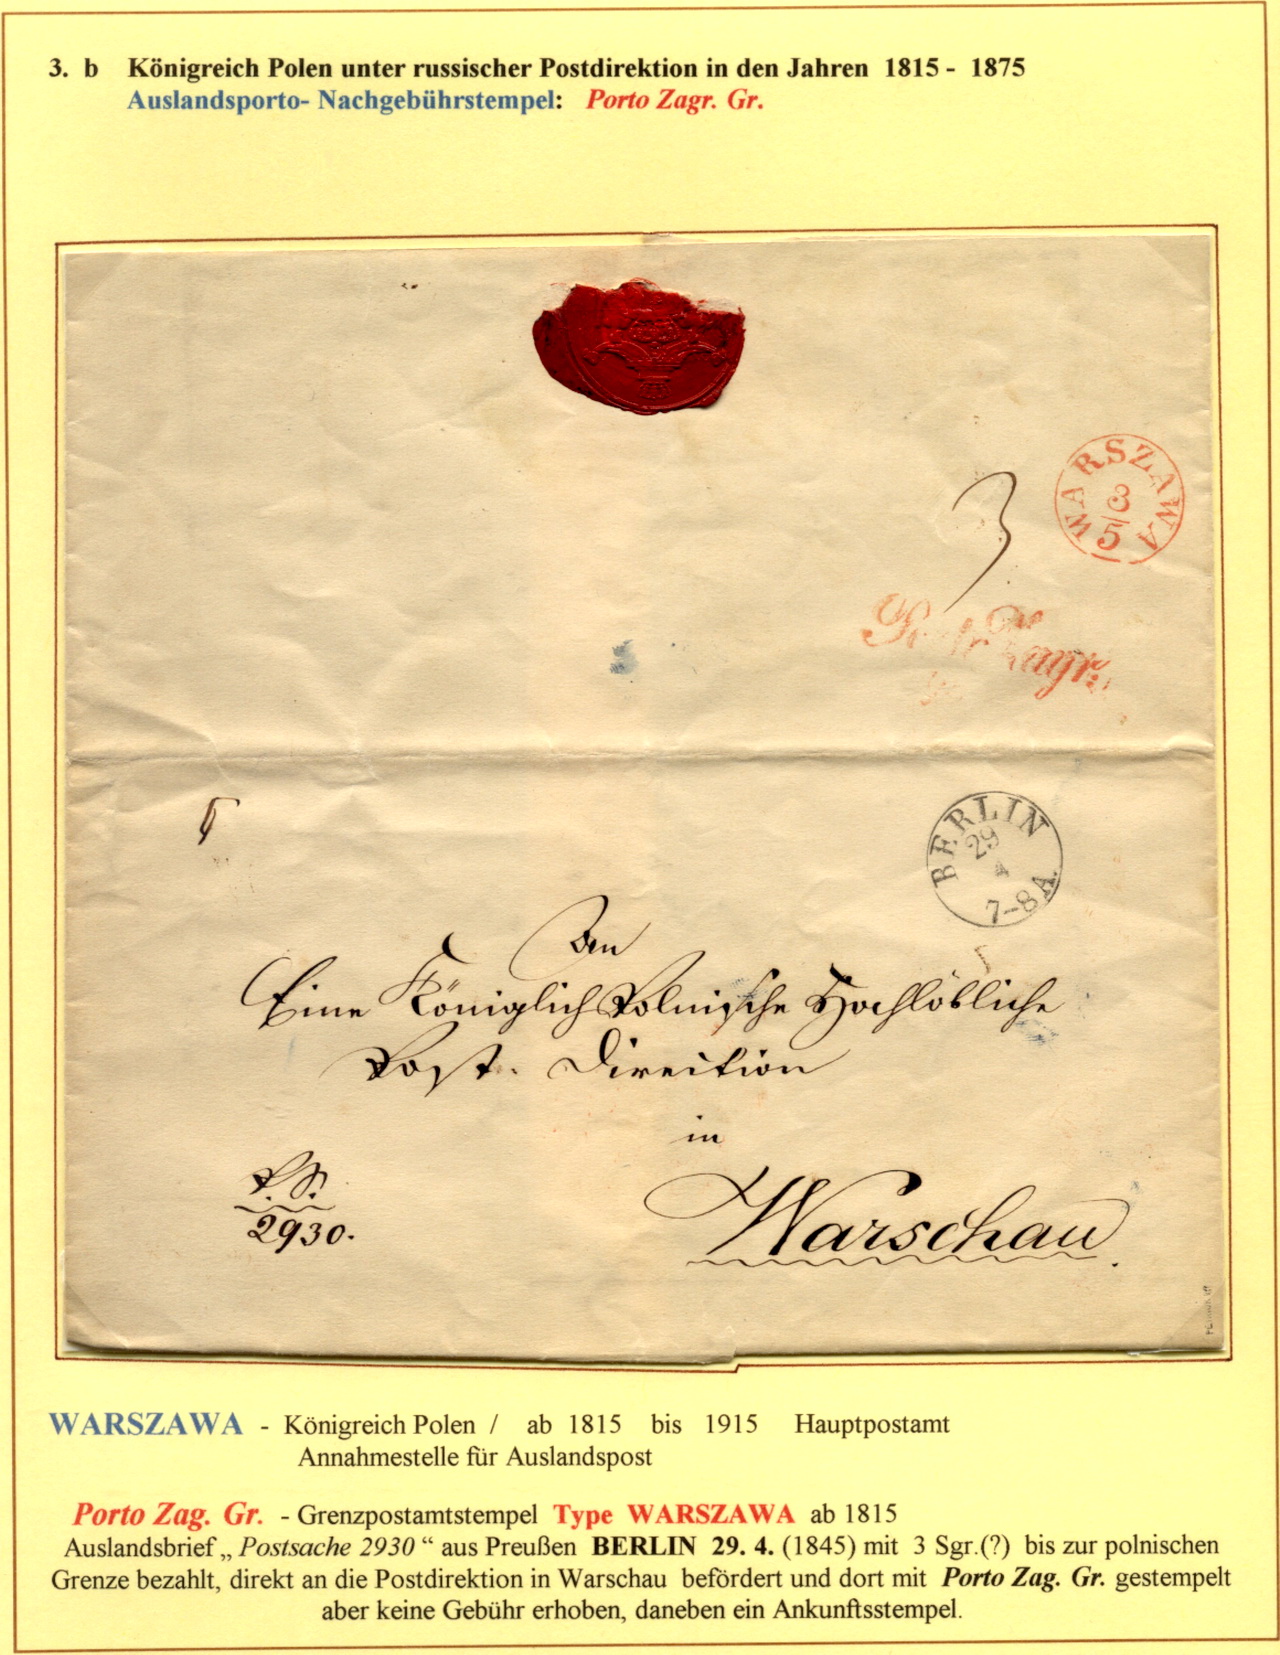 3. b Königreich Polen unter russischer Postdirektion in den Jahren 1815 - 1875
Auslandsporto- Nachgebührstempel: Porto Zagr. Gr.
WARSZAWA
3
5
3
Porto Zagr.
BERLIN
29
4
7-8 A.
An
Eine Königlich Polnische Hochlöbliche
Post. Direction
in
Warschau.
P. S.
2930.
WARSZAWA - Königreich Polen / ab 1815 bis 1915 Hauptpostamt
Annahmestelle für Auslandspost
Porto Zag. Gr. - Grenzpostamtstempel Type WARSZAWA ab 1815
Auslandsbrief „ Postsache 2930 “ aus Preußen BERLIN 29. 4. (1845) mit 3 Sgr.(?) bis zur polnischen
Grenze bezahlt, direkt an die Postdirektion in Warschau befördert und dort mit Porto Zag. Gr. gestempelt
aber keine Gebühr erhoben, daneben ein Ankunftsstempel.